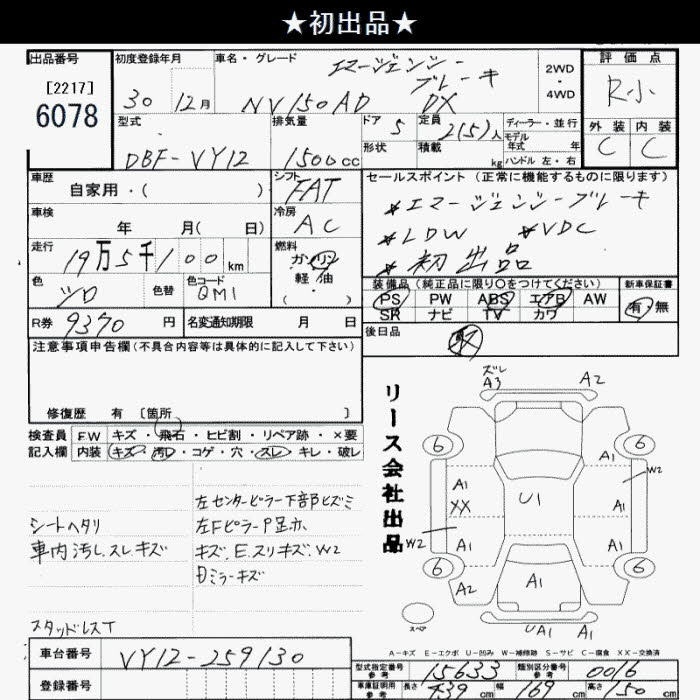 ★初出品★
出品番号
[2217]
6078
初度登録年月
30年12月
車名・グレード
エマージェンシー
ブレーキ
NV150AD DX
2WD
4WD
評価点
R小
外装 内装
C C
型式
DBF-VY12
排気量
1500cc
ドア 5
形状
定員 2(5)人
積載 kg
ディーラー・並行
モデル
年式 年
ハンドル 左・右
車歴
自家用・( )
シフト
FAT
車検
年 月( 日)
冷房
AC
走行
19万5千100km
燃料
ガソリン
軽油
( ・ )
色
シロ
色替
色コード
QM1
R券 9370円
名変通知期限 月 日
セールスポイント(正常に機能するものに限ります)
*エマージェンシーブレーキ
*LDW *VDC
*初出品
装備品(純正品に限り○をつけてください)
PS PW ABS エアB AW
SR ナビ TV カワ
新車保証書
有・無
後日品
取
注意事項申告欄(不具合内容等は具体的に記入して下さい)
修復歴 有 [箇所 ]
検査員
記入欄
FW キズ・飛石・ヒビ割・リペア跡・×要
内装 キズ・汚れ・コゲ・穴・スレ・キレ・破レ
シートヘタリ
車内汚し、スレキズ
スタッドレスT
左センターピラー下部ヒズミ
左Fピラー
キズ、E、スリキズ、W2
ミラーキズ
リース会社出品
ズレ
A3
A2
6
6
A1
W2
A1
XX
U1
A1
W2
A1
A1
6
6
A2
A1
A1
スペア
UA1
A1
A-キズ E-エクボ U-凹み W-補修跡 S-サビ C-腐食 XX-交換済
車台番号
VY12-259130
登録番号
型式指定番号
参考
15633
類別区分番号
参考
0016
車庫証明用
参考
長さ 439cm 幅 169cm 高さ 150cm